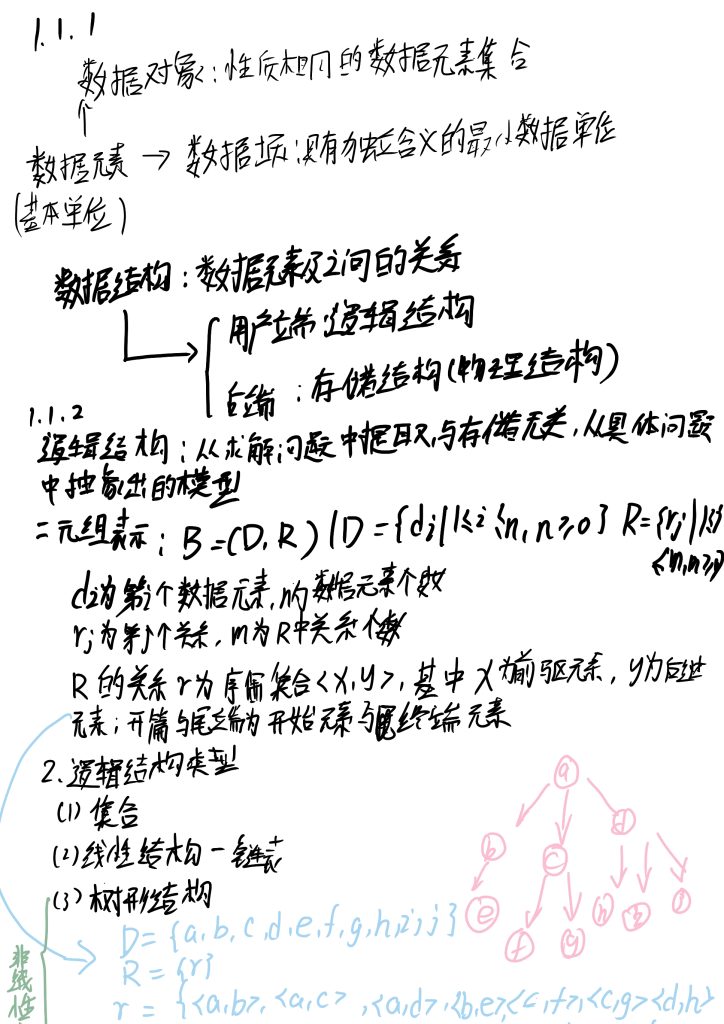 1.1.1
数据对象：性质相同的数据元素集合
↑
数据元素 → 数据项：具有独立含义的最小数据单位
(基本单位)
数据结构：数据元素及之间的关系
用户端：逻辑结构
后端：存储结构(物理结构)
1.1.2
逻辑结构：从求解问题中提取，与存储无关，从具体问题
中抽象出的模型
二元组表示：B=(D,R) D={di|1≤i≤n,n≥0} R={rj|1≤j
≤m,m≥0}
di为第i个数据元素，n为数据元素个数
rj为第j个关系，m为R中关系个数
R的关系r为序偶集合<x,y>，其中x为前驱元素，y为后继
元素；开篇与尾端为开始元素与终端元素
2.逻辑结构类型
(1)集合
(2)线性结构－链表
(3)树形结构
a
b c d
e f g h i j
非线性
D={a,b,c,d,e,f,g,h,i,j}
R={r}
r={<a,b>,<a,c>,<a,d>,<b,e>,<c,f>,<c,g><d,h>